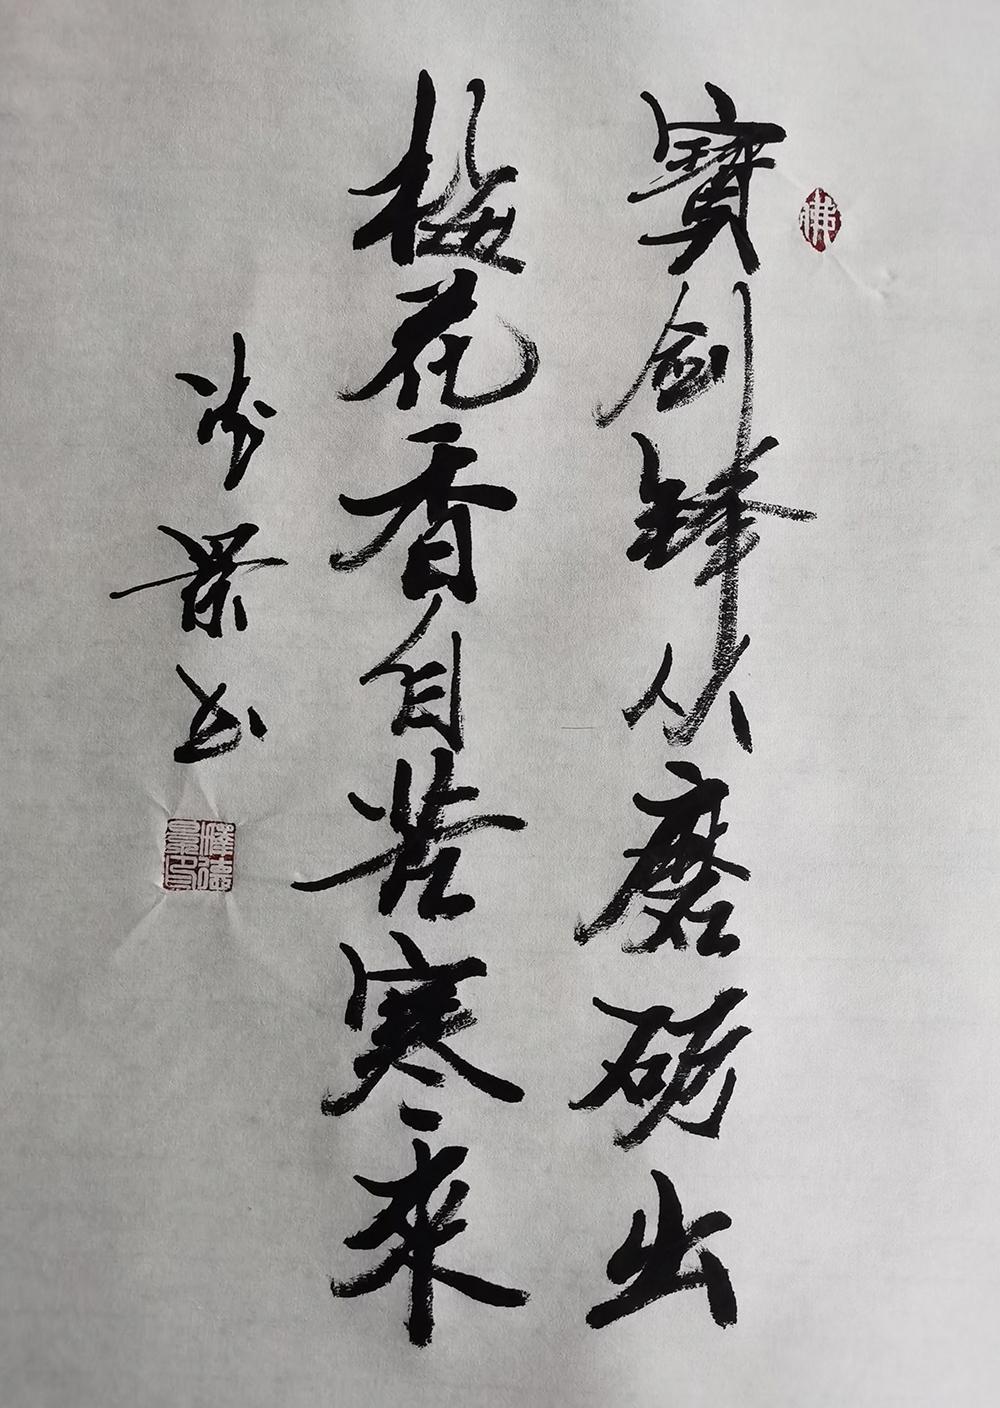 寶劍鋒从磨砺出
梅花香自苦寒來
景书
佛